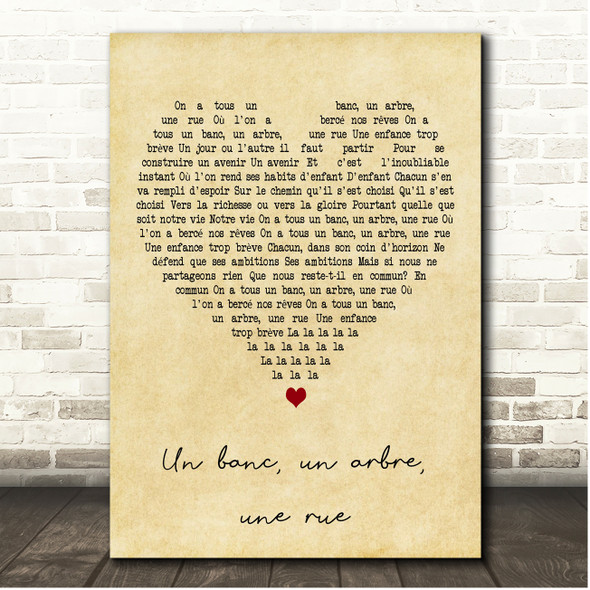 On a tous un banc, un arbre,
une rue Où l'on a bercé nos rêves On a
tous un banc, un arbre, une rue Une enfance trop
brève Un jour ou l'autre il faut partir Pour se
construire un avenir Un avenir Et c'est l'inoubliable
instant Où l'on rend ses habits d'enfant D'enfant Chacun s'en
va rempli d'espoir Sur le chemin qu'il s'est choisi Qu'il s'est
choisi Vers la richesse ou vers la gloire Pourtant quelle que
soit notre vie Notre vie On a tous un banc, un arbre, une rue Où
l'on a bercé nos rêves On a tous un banc, un arbre, une rue
Une enfance trop brève Chacun, dans son coin d'horizon Ne
défend que ses ambitions Ses ambitions Mais si nous ne
partageons rien Que nous reste-t-il en commun? En
commun On a tous un banc, un arbre, une rue Où
l'on a bercé nos rêves On a tous un banc,
un arbre, une rue Une enfance
trop brève La la la la la
la la la la la la la
La la la la la
la la la
Un banc, un arbre,
une rue